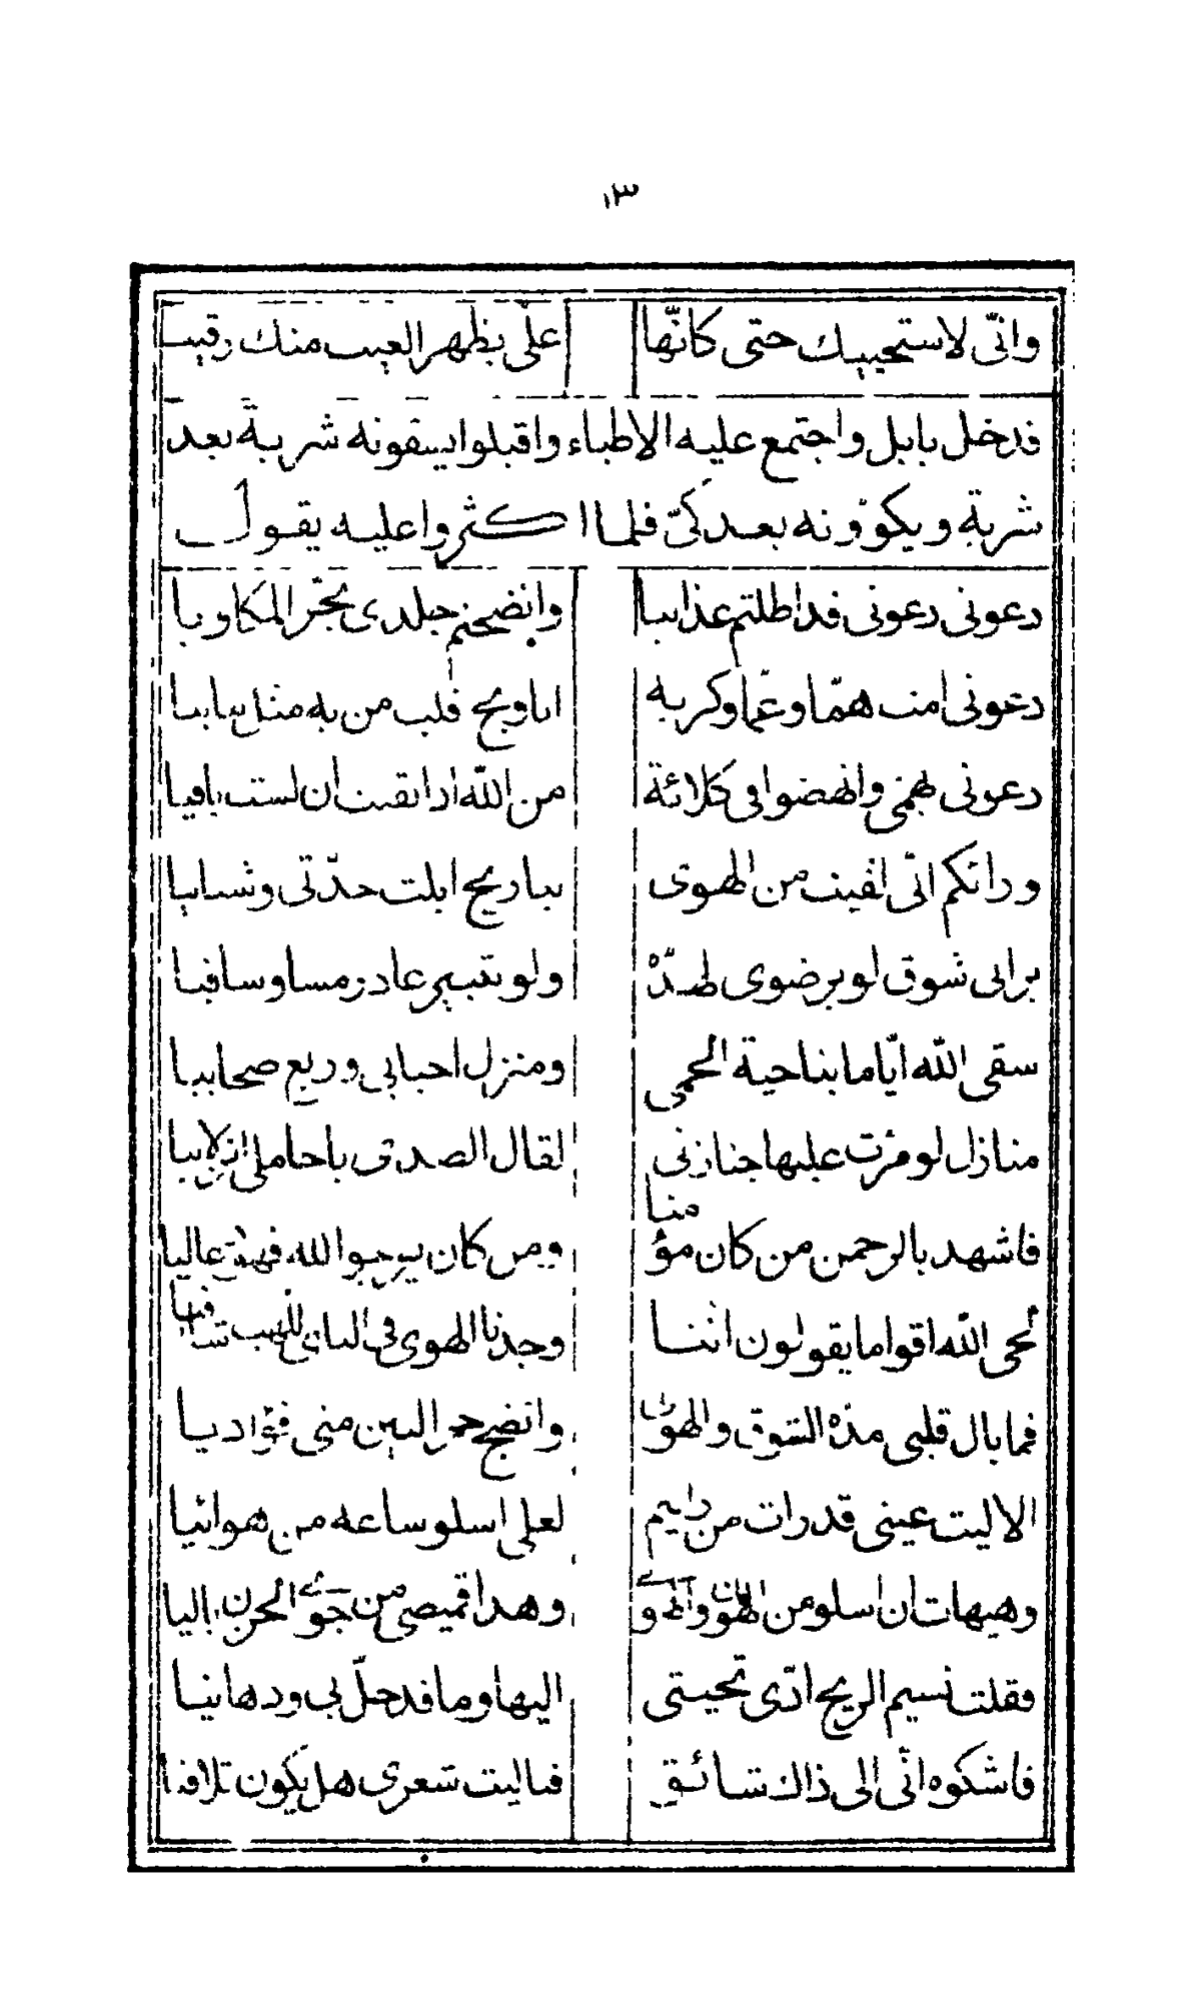 ١٣
وانّى لاستحييك حتى كانّها علىّ بظهر الغيب منك رقيب
فدخل بابل واجتمع عليه الاطباء واقبلوا يسقونه شربة بعد
شربة ويكوونه بعد كىّ فلما اكثروا عليه يقول
دعونى دعونى قد اطلتم عذابيا وانضجتم جلدى بحرّ المكاويا
دعونى امت همّا وغمّا وكربه ايا ويح قلب من به مثل مابيا
دعونى بغمى وانهضوا فى كلائة من الله قد ايقنت أن لست باقيا
ورائكم انّى لقيت من الهوى تباريح ابلت جدّتى وشبابيا
برانى شوق لو برضوى لهدّه ولو بثبير عاد رمسا وسافيا
سقى الله ايّاما بناحية الحمى ومنزل احبابى وربع صحابيا
منازل لو مرّت عليها جنازتى لقال الصدى ياحاملىّ انزلابيا
فاشهد بالرحمن من كان مؤمنا ومن كان يرجو الله فهو
لحى الله اقواما يقولون اننا وجدنا الهوى فى النأى للصب شافيا
فما بال قلبى هذه الشوق والهوى وانضج حر البين منى فؤاديا
الا ليت عينى قد رات من رايهم لعلى اسلو ساعه من هوائيا
وهيهات ان اسلو من والهوى وهذا قميصى من جوى الحزن باليا
فقلت نسيم الريح ادّى تحيتى اليها وما قد حلّ بى ودهانيا
فاشكوه انّى الى ذاك شائق فياليت شعرى هل يكون تلاقيا